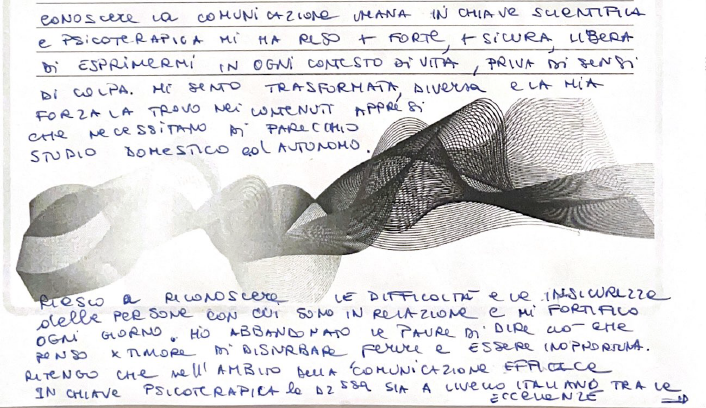 CONOSCERE LA COMUNICAZIONE UMANA IN CHIAVE SCIENTIFICA
e PSICOTERAPICA MI HA RESO + FORTE, + SICURA, LIBERA
DI ESPRIMERMI IN OGNI CONTESTO DI VITA, PRIVA DI SENSI
DI COLPA. MI SENTO TRASFORMATA, DIVERSA e LA MIA
FORZA LA TROVO NEI CONTENUTI APPRESI
CHE NECESSITANO DI PARECCHIO
STUDIO DOMESTICO ed AUTONOMO.
RIESCO a RICONOSCERE LE DIFFICOLTA' e Le INSICUREZZE
delle PERSONE CON CUI SONO IN RELAZIONE e MI FORTIFICO
OGNI GIORNO. HO ABBANDONATO le PAURE DI DIRE CIO' CHE
PENSO X TIMORE DI DISTURBARE FERIRE e ESSERE INOPPORTUNA.
RITENGO CHE Nell'AMBITO DELLA COMUNICAZIONE EFFICACE
IN CHIAVE PSICOTERAPICA la SIA A LIVELLO ITALIANO TRA LE
ECCELLENZE